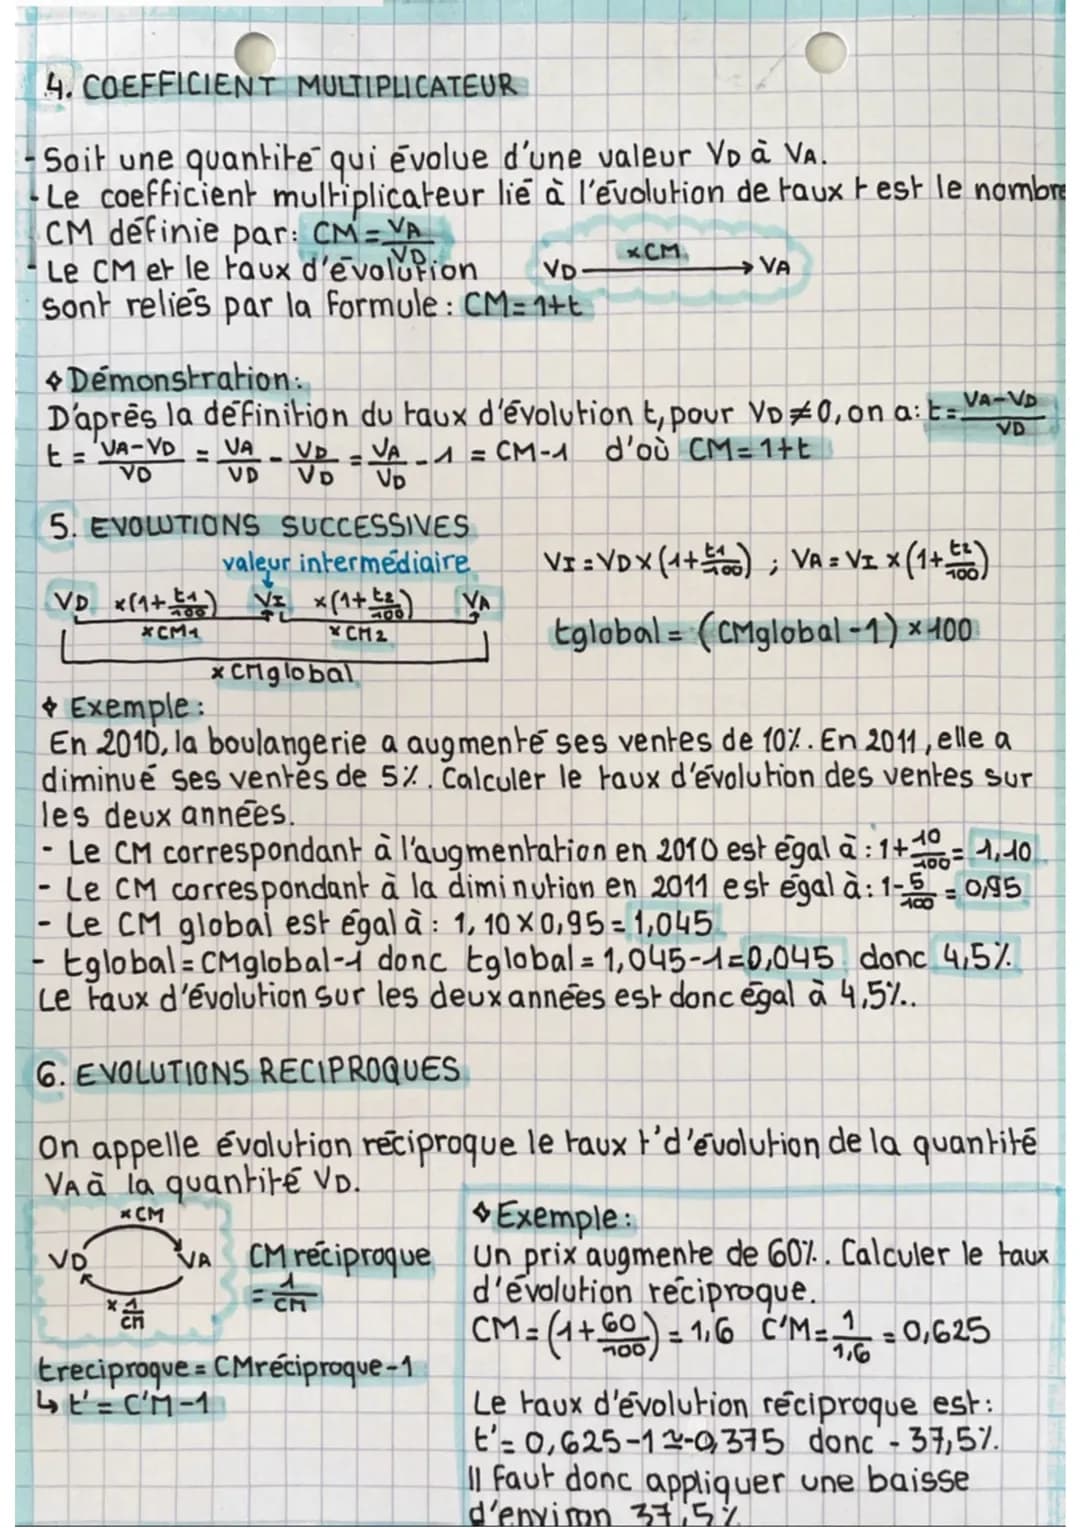 4. COEFFICIENT MULTIPLICATEUR
- Soit une quantité qui évolue d'une valeur VD à VA.
- Le coefficient multiplicateur lié à l'évolution de taux t est le nombre
CM définie par: CM = VA/VD
- Le CM et le taux d'évolution
sont reliés par la formule : CM = 1+t
VD ×CM → VA
❖ Démonstration:
D'après la définition du taux d'évolution t, pour VD ≠ 0, on a: t = (VA-VD)/VD
t = (VA-VD)/VD = VA/VD - VD/VD = VA/VD - 1 = CM-1 d'où CM = 1+t
5. EVOLUTIONS SUCCESSIVES
valeur intermédiaire
VD ×(1+t1/100) VI ×(1+t2/100) VA
×CM1 ×CM2
×CMglobal
VI = VD×(1+t1/100) ; VA = VI×(1+t2/100)
tglobal = (CMglobal-1)×100
❖ Exemple:
En 2010, la boulangerie a augmenté ses ventes de 10%. En 2011, elle a
diminué ses ventes de 5%. Calculer le taux d'évolution des ventes sur
les deux années.
- Le CM correspondant à l'augmentation en 2010 est égal à : 1+10/100 = 1,10
- Le CM correspondant à la diminution en 2011 est égal à: 1-5/100 = 0,95
- Le CM global est égal à : 1,10×0,95 = 1,045
- tglobal = CMglobal-1 donc tglobal = 1,045-1=0,045 donc 4,5%
Le taux d'évolution sur les deux années est donc égal à 4,5%..
6. EVOLUTIONS RECIPROQUES
On appelle évolution réciproque le taux t' d'évolution de la quantité
VA à la quantité VD.
×CM
VD VA
×1/CM
CM réciproque
= 1/CM
treciproque = CMréciproque-1
↳ t' = C'M-1
❖ Exemple:
Un prix augmente de 60%.. Calculer le taux
d'évolution réciproque.
CM = (1+60/100) = 1,6 C'M = 1/1,6 = 0,625
Le taux d'évolution réciproque est:
t' = 0,625-1≃-0,375 donc -37,5%.
Il faut donc appliquer une baisse
d'environ 37,5%